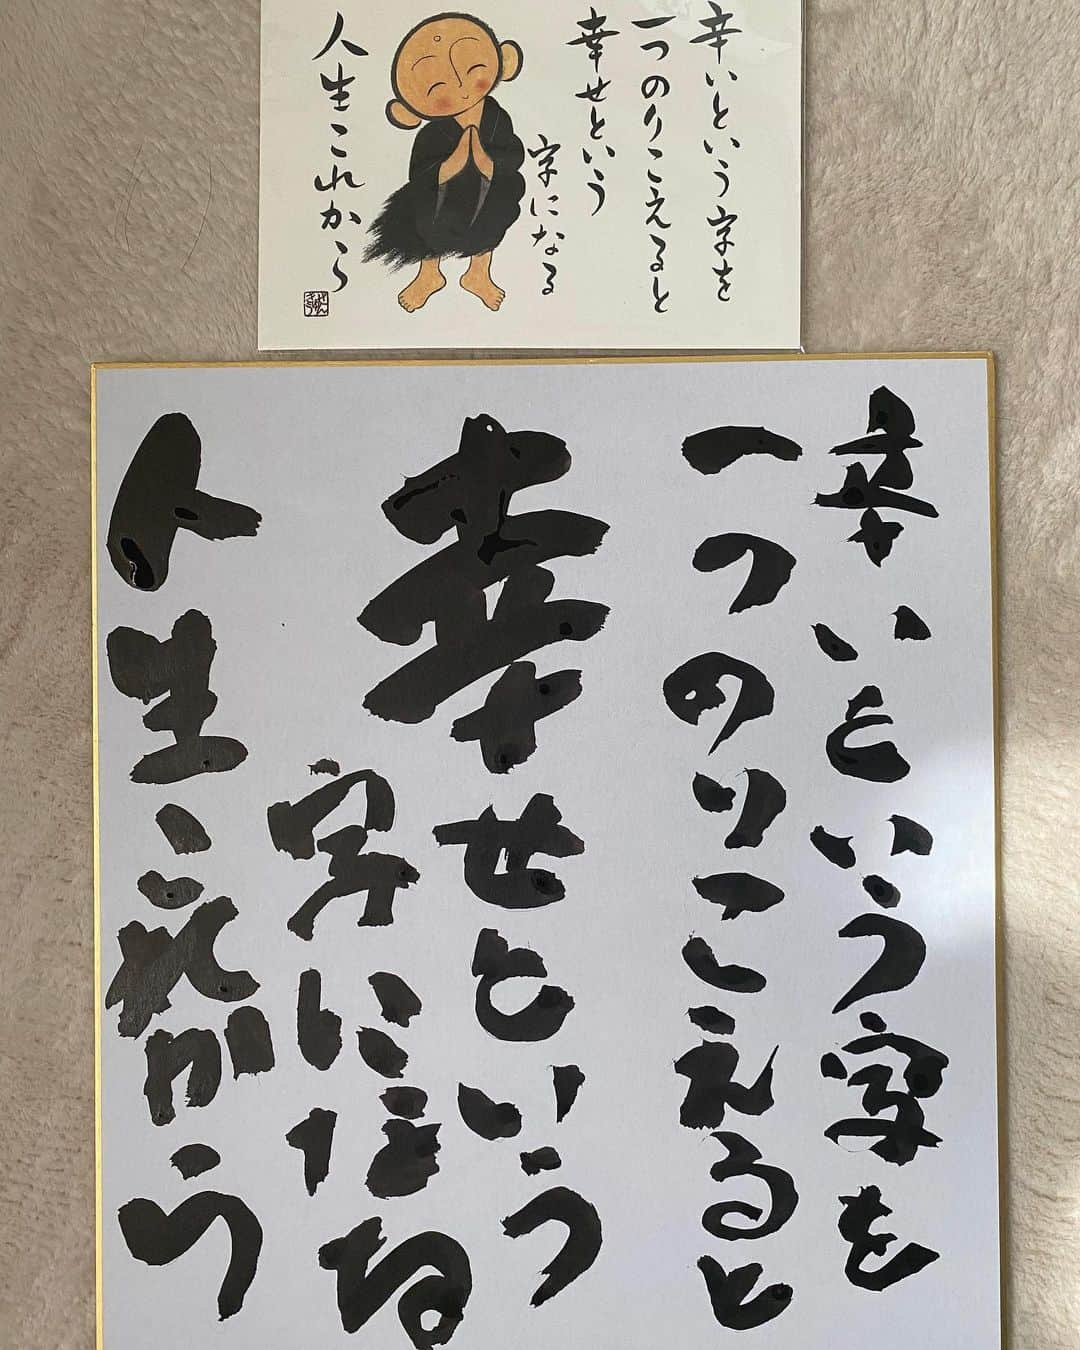 辛いという字を
一つのりこえると
幸せという
字になる
人生これから
辛いという字を
一つのりこえると
幸せという
字になる
人生これから